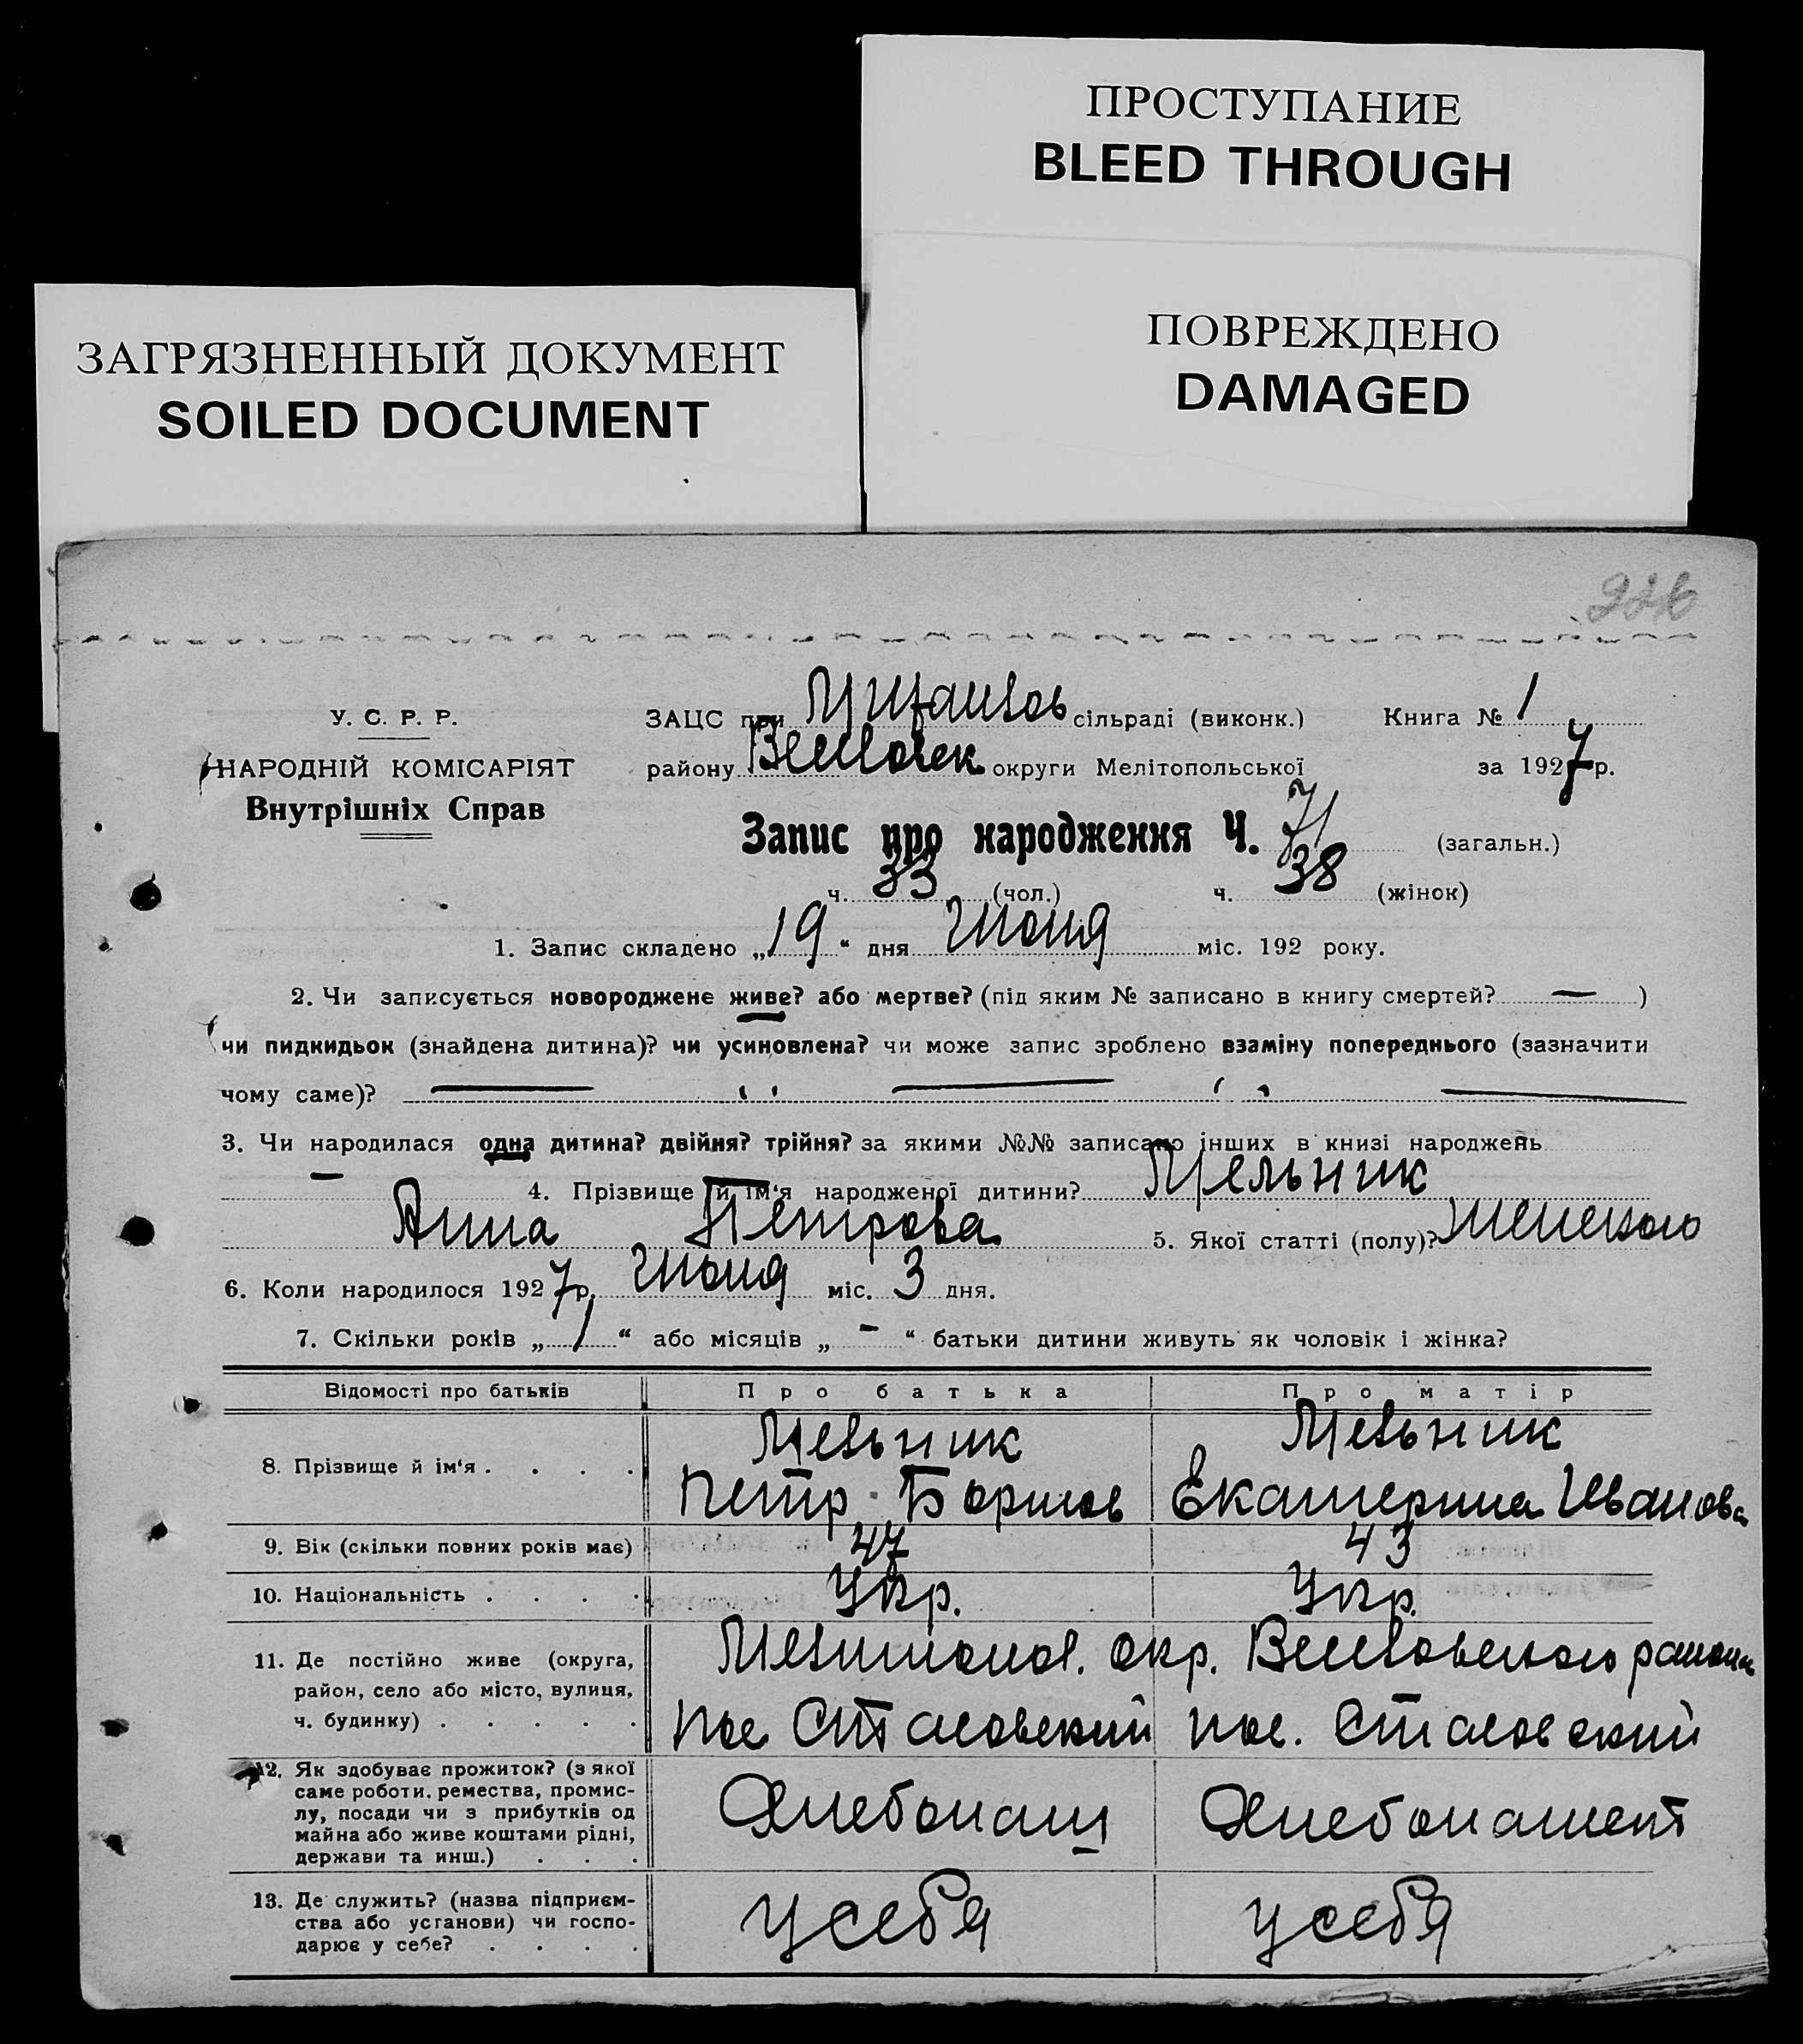 ПРОСТУПАНИЕ
BLEED THROUGH
ПОВРЕЖДЕНО
DAMAGED
ЗАГРЯЗНЕННЫЙ ДОКУМЕНТ
SOILED DOCUMENT
У. С. Р. Р.
НАРОДНІЙ КОМІСАРІЯТ
Внутрішніх Справ
ЗАЦС при сільраді (виконк.) Книга № 1
району округи Мелітопольської за 1927 р.
Запис про народження Ч. 71 (загальн.)
ч. 33 (чол.) ч. 38 (жінок)
1. Запис складено „19“ дня Июня міс. 192 року.
2. Чи записується новороджене живе? або мертве? (під яким № записано в книгу смертей? — )
чи пидкидьок (знайдена дитина)? чи усиновлена? чи може запис зроблено взаміну попереднього (зазначити
чому саме)? — " — " —
3. Чи народилася одна дитина? двійня? трійня? за якими №№ записано інших в книзі народжень
— 4. Прізвище й ім‘я народженої дитини? Мельник
Анна Петрова 5. Якої статті (полу)? женского
6. Коли народилося 1927 р. Июня міс. 3 дня.
7. Скільки років „1“ або місяців „-“ батьки дитини живуть як чоловік і жінка?
Відомості про батьків Про батька Про матір
8. Прізвище й ім‘я . . . . Мельник Петр Борисов Мельник Екатерина Иванова
9. Вік (скільки повних років має) 47 43
10. Національність . . . . Укр. Укр.
11. Де постійно живе (округа,
район, село або місто, вулиця,
ч. будинку) . . . . .
Мелитопол. окр. Веселовского района
пос. пос.
12. Як здобуває прожиток? (з якої
саме роботи, ремества, промис-
лу, посади чи з прибутків од
майна або живе коштами рідні,
держави та инш.) . . .
Хлебопаш Хлебопашест
13. Де служить? (назва підприєм-
ства або установи) чи госпо-
дарює у себе? . . . .
у себя у себя